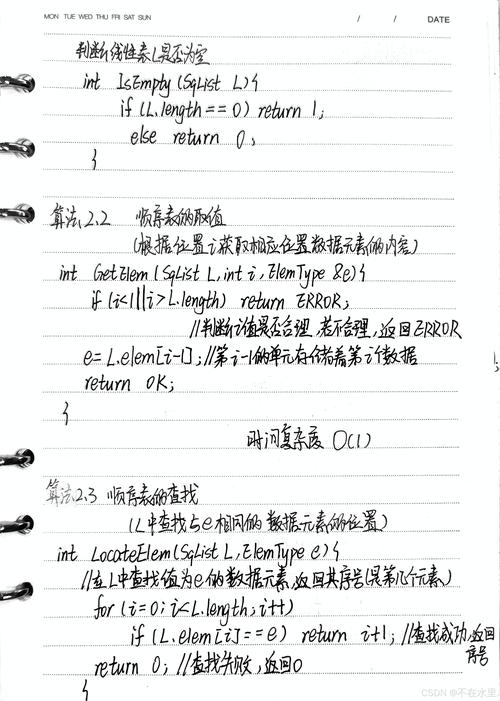 MON TUE WED THU FRI SAT SUN / / DATE
判断线性表L是否为空
int IsEmpty(SqList L){
if (L.length==0) return 1;
else return 0;
}
算法2.2 顺序表的取值
(根据位置i获取相应位置数据元素的内容)
int GetElem(SqList L,int i,ElemType &e){
if (i<1||i>L.length) return ERROR;
//判断i值是否合理,若不合理,返回ERROR
e=L.elem[i-1];//第i-1的单元存储着第i个数据
return OK;
}
时间复杂度 O(1)
算法2.3 顺序表的查找
(L中查找与e相同的数据元素的位置)
int LocateElem(SqList L,ElemType e){
//在L中查找值为e的数据元素,返回其序号(是第几个元素)
for (i=0;i<L.length;i++)
if (L.elem[i]==e) return i+1; //查找成功,返回
序号
return 0; //查找失败,返回0
}
CSDN @不在水里.